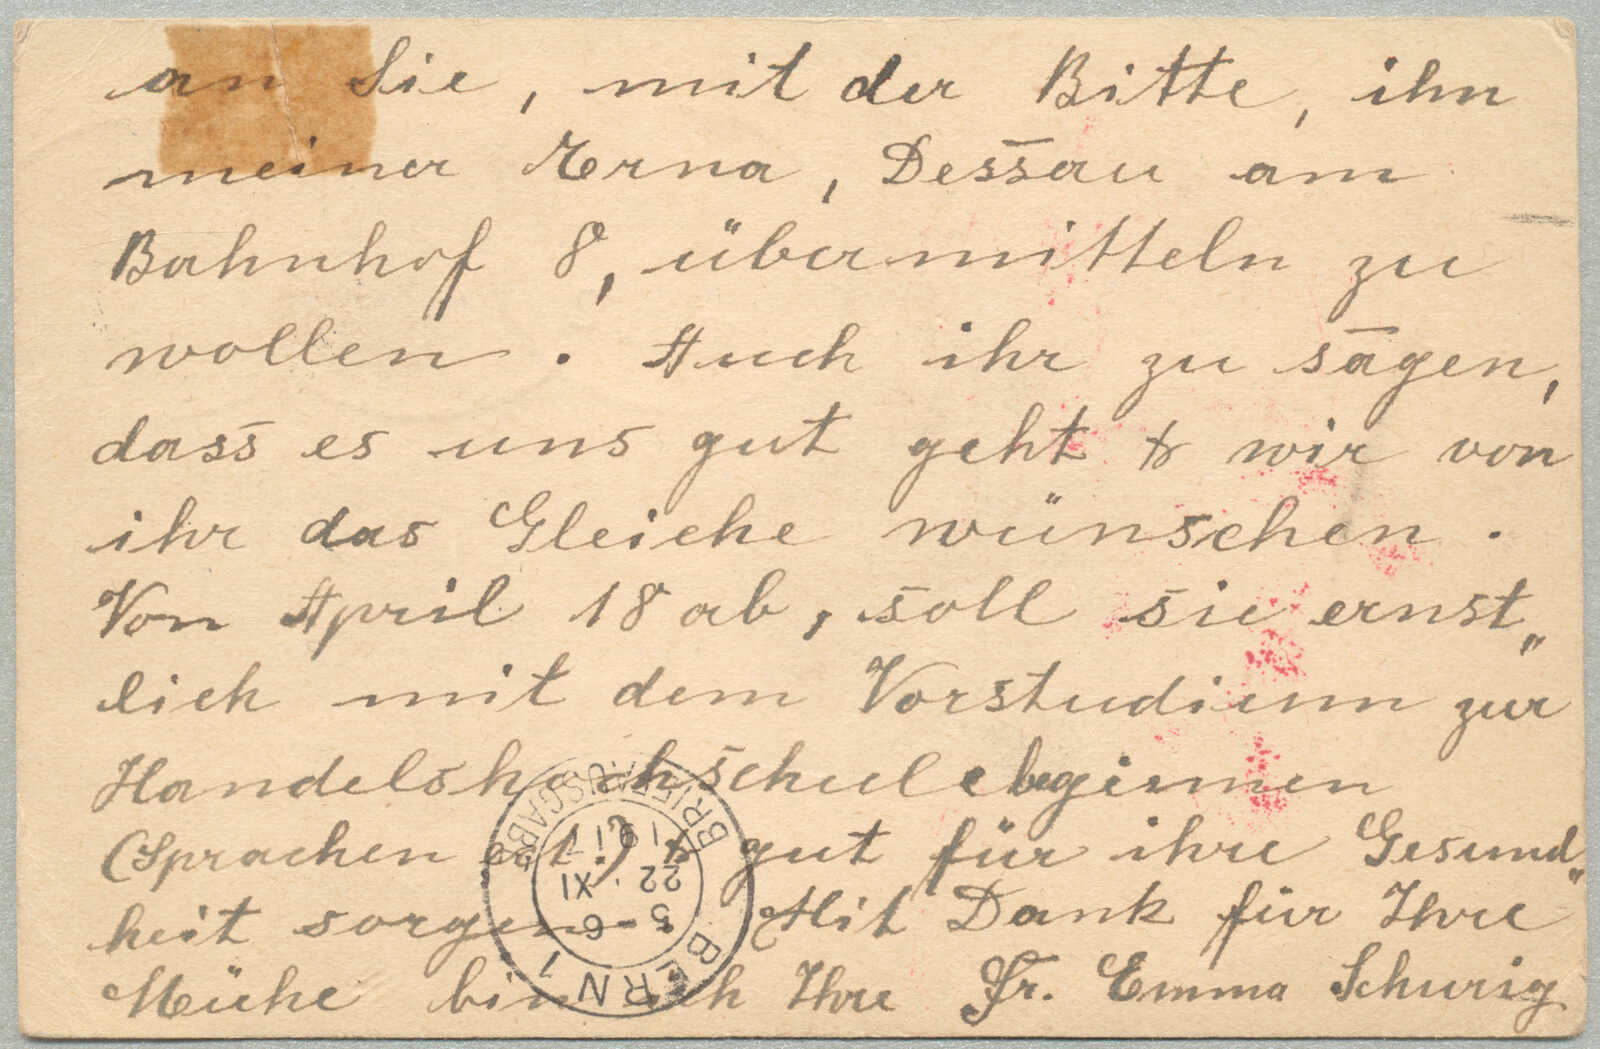 an Sie, mit der Bitte, ihn
meiner Erna, Dessau am
Bahnhof 8, übermitteln zu
wollen. Auch ihr zu sagen,
dass es uns gut geht & wir von
ihr das Gleiche wünschen.
Von April 18 ab, soll sie ernst„
lich mit dem Vorstudium zur
Handelshochschule beginnen
(Sprachen ect.) & gut für ihre Gesund„
heit sorgen. Mit Dank für Ihre
Mühe bin ich Ihre Fr. Emma Schurig
BERN 1
5-6
22. XI
17
BRIEFAUSGABE